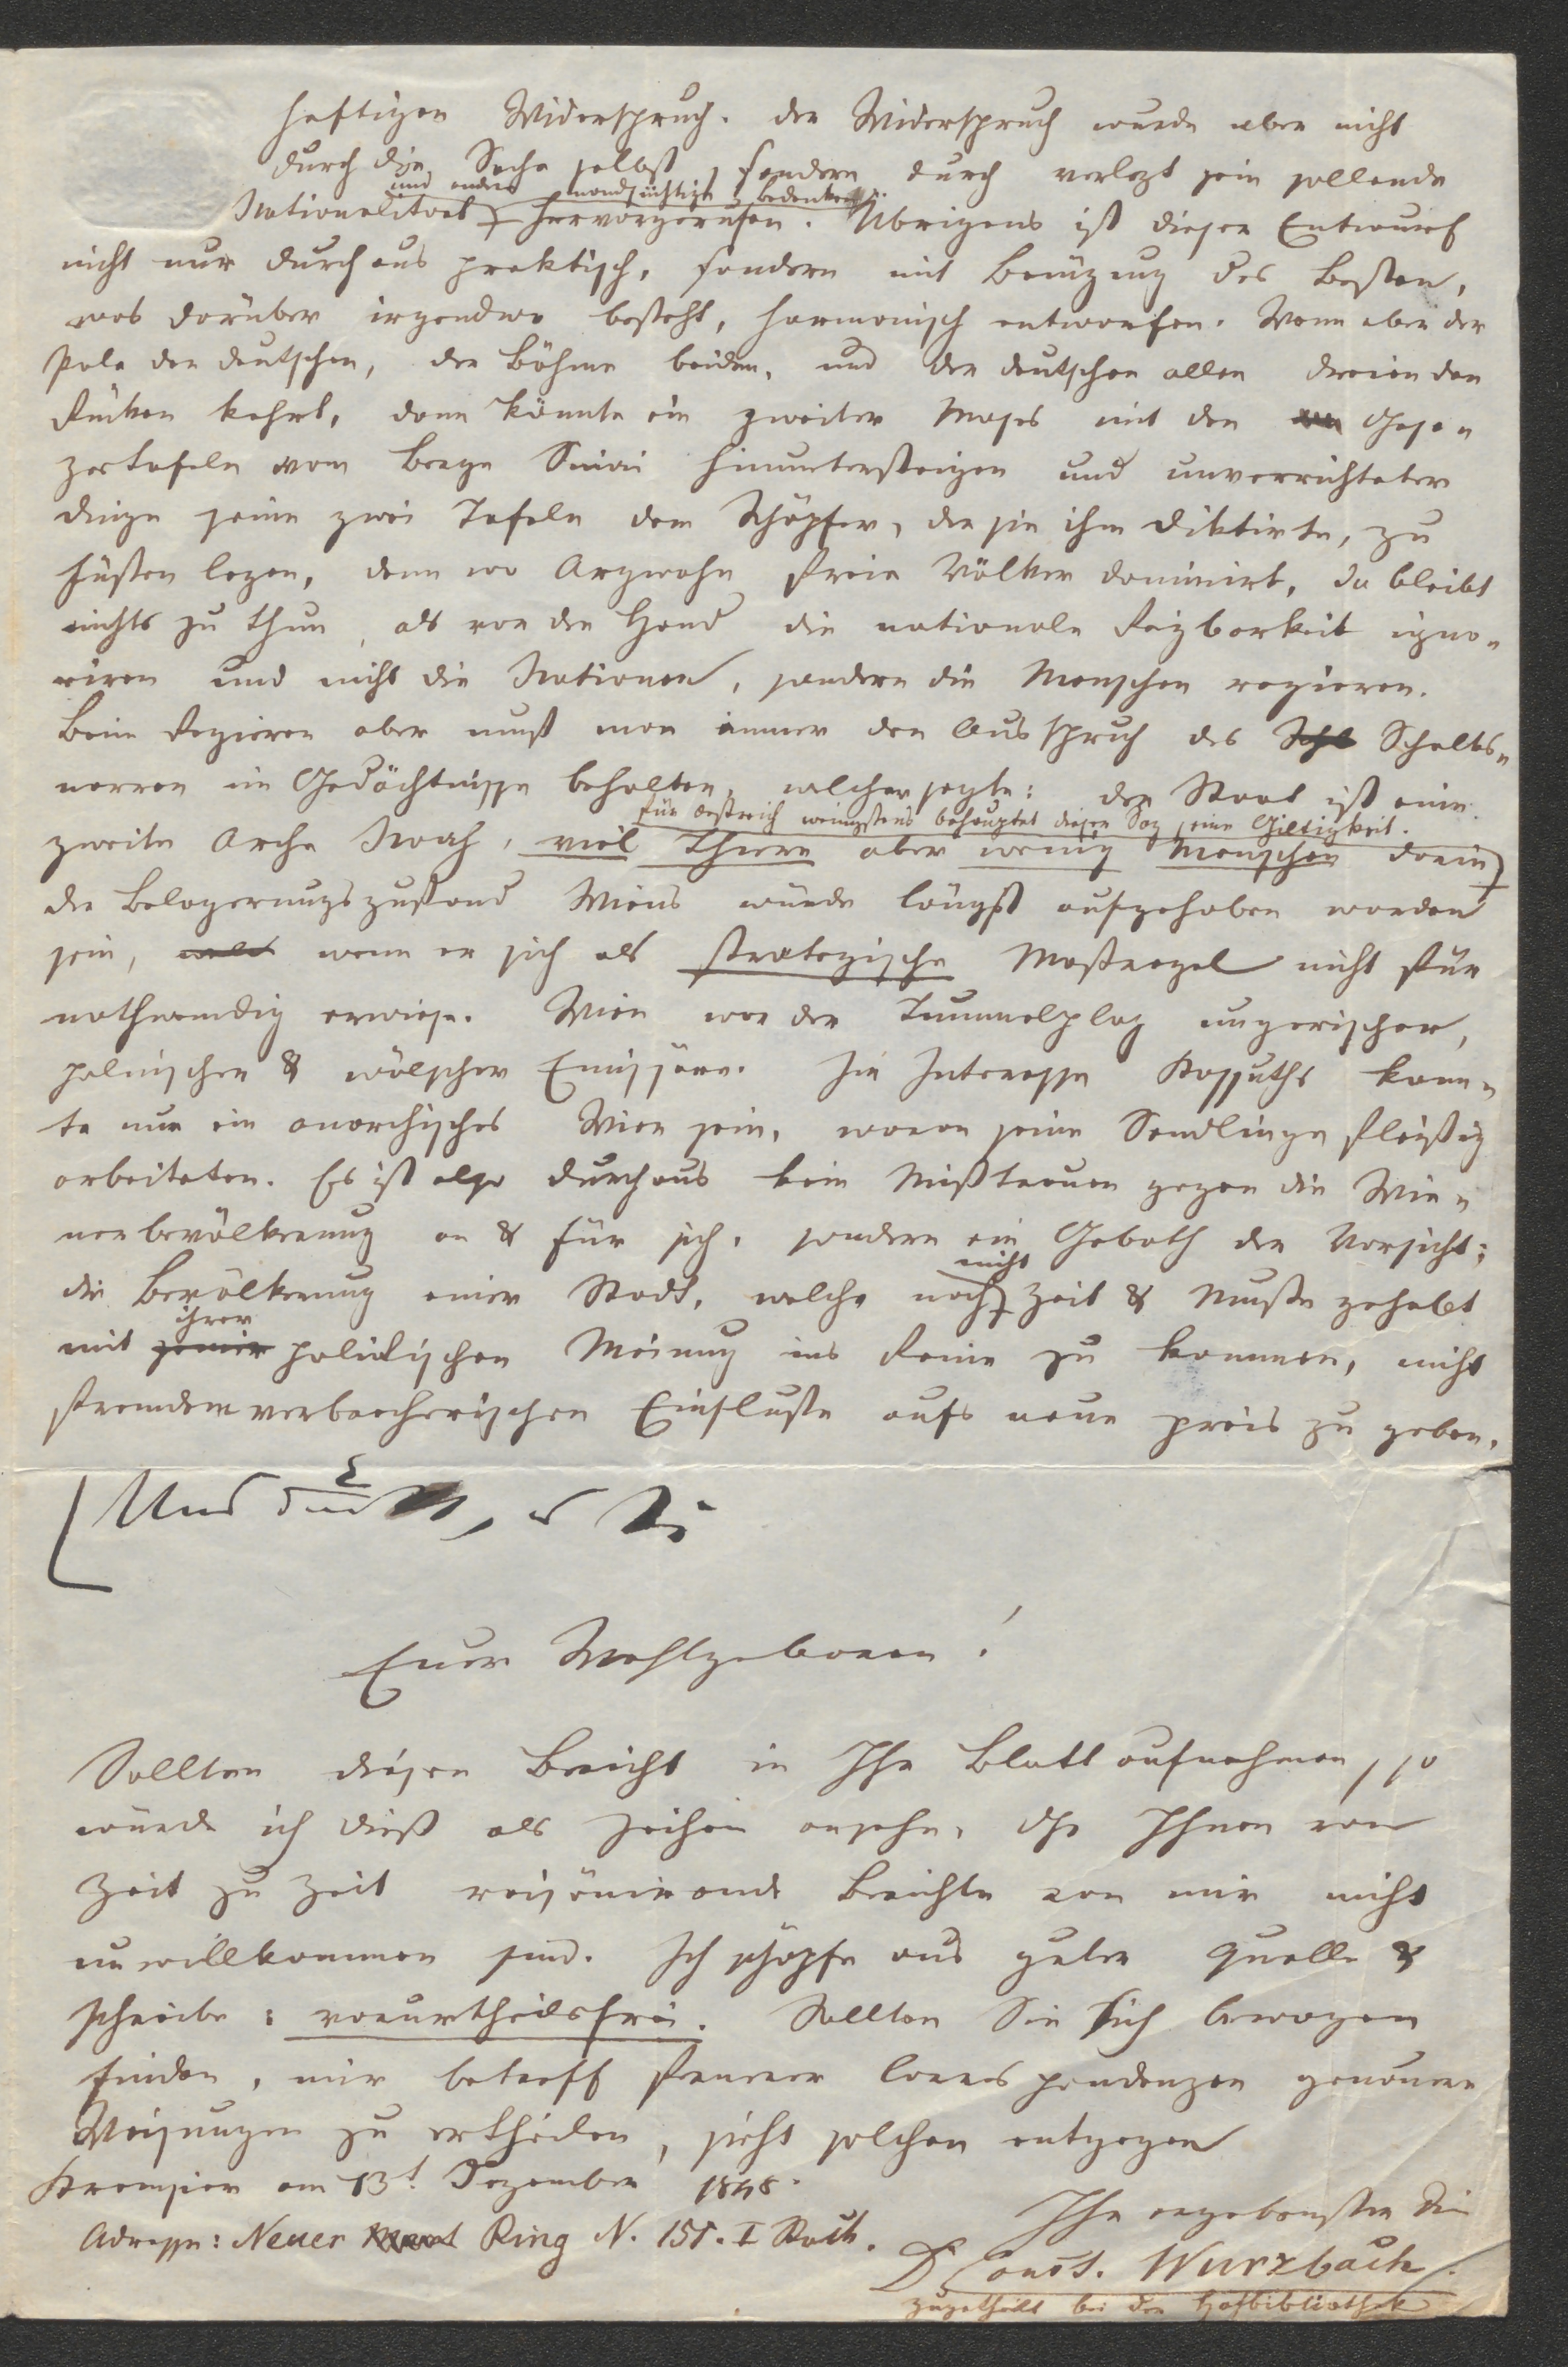 heftigen Widerspruch. Der Widerspruch wurde aber nicht
durch die Sache selbst, sondern durch verlezt sein sollende
und andere mondsüchtige Bedenken
Nationalitaet hervorgerufen. Übrigens ist dieser Entwurf
nicht nur durchaus praktisch, sondern mit Benüzung des Besten,
was darüber irgendwo besteht, harmonisch entworfen. Wenn aber der
Pole den Deutschen, der Böhme beiden, und der Deutsche allen dreien den
Rücken kehrt, dann könnte ein zweiter Moses mit den Gese-
zestafeln vom Berge Sinai hinuntersteigen und unverrichteter
Dinge seine zwei Tafeln dem Schöpfer, der sie ihm diktirte, zu
Füßen legen, denn wo Argwohn freie Völker dominirt, da bleibt
nichts zu thun, als vor der Hand die nationale Reizbarkeit igno-
riren und nicht die Nationen, sondern die Menschen regieren.
Beim Regieren aber muß man immer den Ausspruch des Schalks-
narren im Gedächtnisse behalten, welcher sagte: der Staat ist eine
für Oestreich wenigstens behauptet dieser Saz seine Giltigkeit.
zweite Arche Noah, viel Thiere aber wenig Menschen darin
Der Belagerungszustand Wiens würde längst aufgehoben worden
sein, wenn er sich als strategische Maßregel nicht für
nothwendig erwiese. Wien war der Tummelplaz ungarischer,
polnischer & wälscher Emissäre. Im Interesse Kossuths konn-
te nur ein anarchisches Wien sein, woran seine Sendlinge fleißig
arbeiteten. Es ist also durchaus kein Mißtrauen gegen die Wie-
nerbevölkerung an & für sich, sondern ein Geboth der Vorsicht;
nicht
die Bevölkerung einer Stadt, welche noch Zeit & Muße gehabt
ihrer
mit politischen Meinung ins Reine zu kommen, nicht
fremdem verbrecherischen Einfluße aufs neue preis zu geben.
Euer Wohlgeboren!
Sollten diesen Bericht in Ihr Blatt aufnehmen, so
würde ich dieß als Zeichen ansehn, dß Ihnen von
Zeit zu Zeit raisönirende Berichte von mir nicht
unwillkommen sind. Ich schöpfe aus guter Quelle &
schreibe: vorurtheilsfrei. Sollten Sie sich bewogen
finden, mir betreff fernerer Correspondenzen genauere
Weisungen zu ertheilen, sieht solchen entgegen
Kremsier am 13t. Dezember 1848.
Ihr ergebenster Di
Adresse: Neuer Ring N. 151. I Stock.
D Const. Wurzbach.
zugetheilt bei der Hofbibliothek